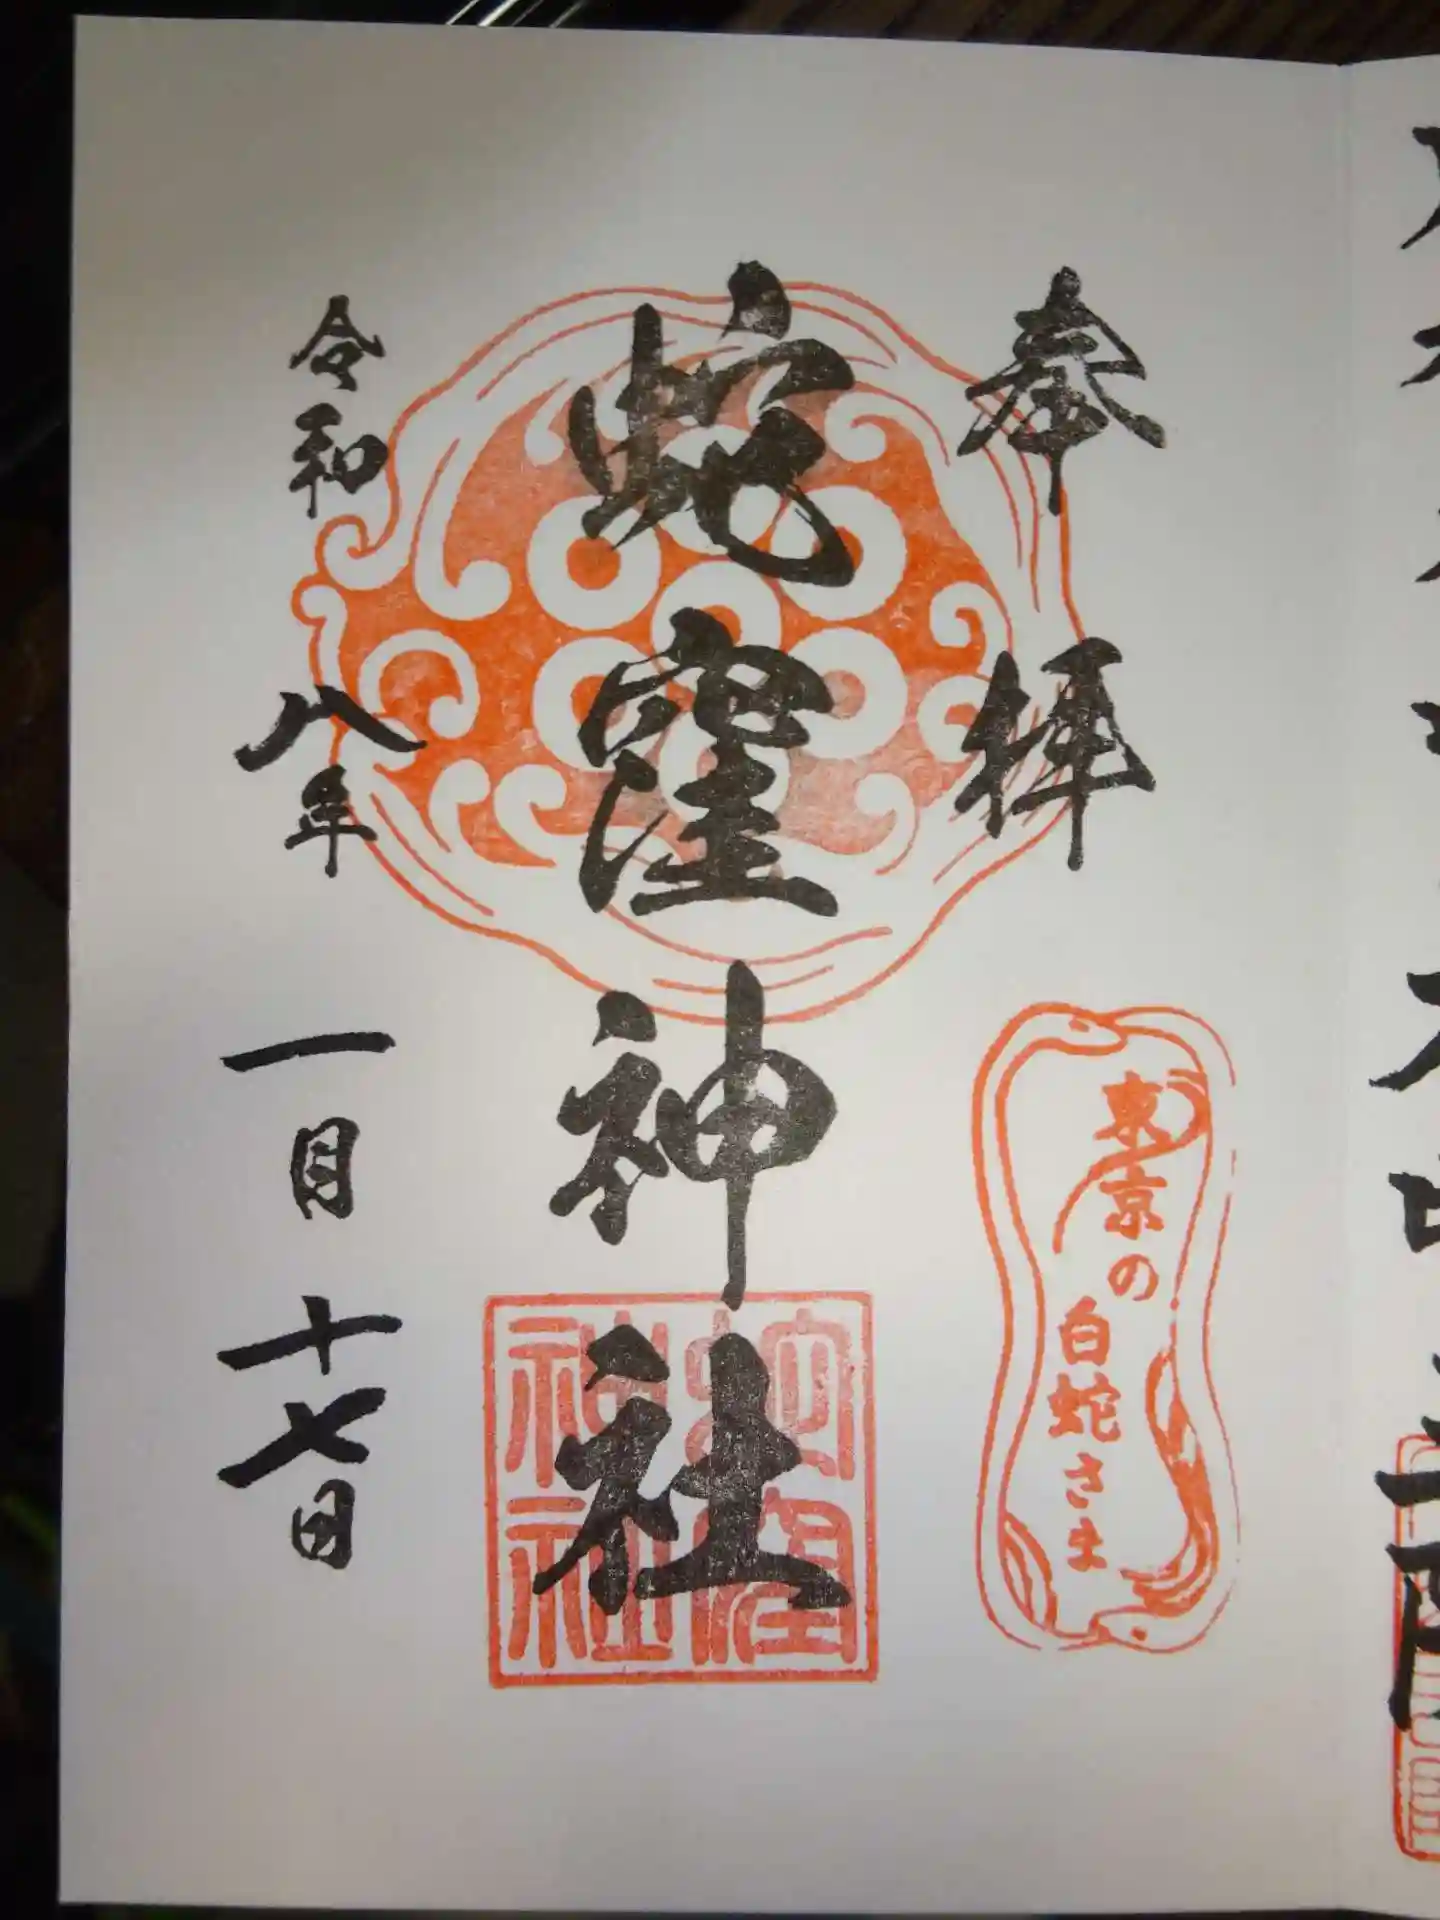 奉拝
東京の
白蛇さま
蛇窪神社
蛇窪
神社
令和八年一月十七日